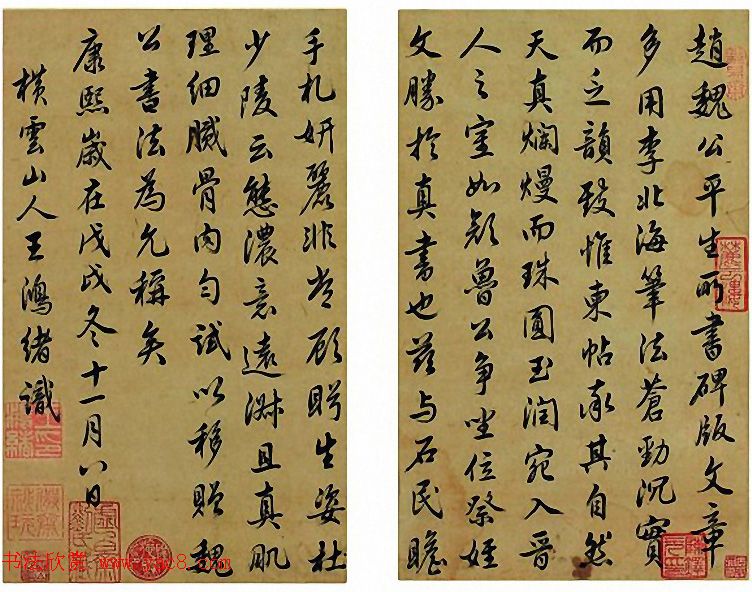 趙魏公平生所書碑版文章
多用李北海筆法蒼勁沉實
而乏韻致惟柬帖承其自然
天真爛熳而珠圓玉潤宛入晉
人之室如顏魯公爭坐位祭姪
文勝於真書也茲与石民瞻
手札妍麗非常顧眄生姿杜
少陵云態濃意遠淑且真肌
理細膩骨肉勻試以移贈魏
公書法為允稱矣
康熙歲在戊戌冬十一月八日
橫雲山人王鴻緒識
书法欣赏 www.yac8.com